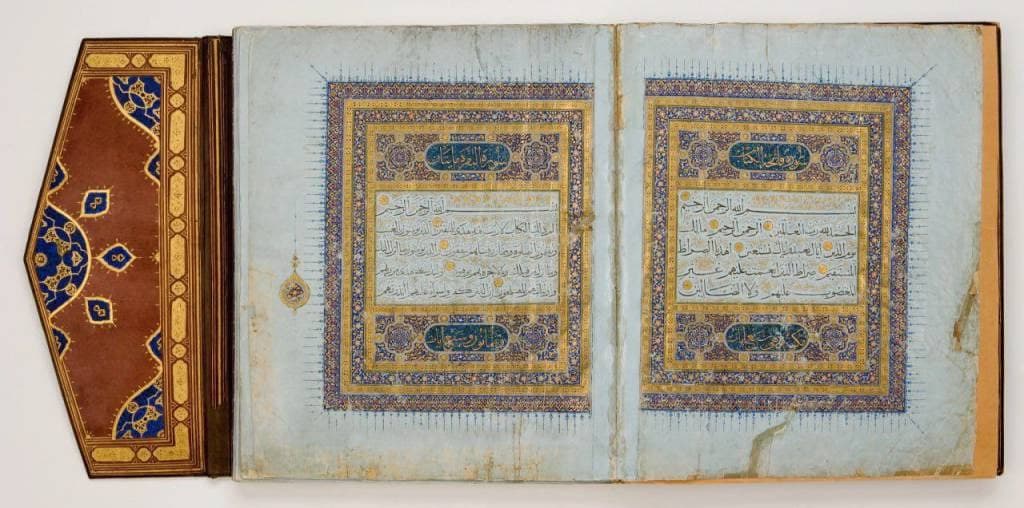 سورة فاتحة الكتاب
بسم الله الرحمن الرحيم
الحمد لله رب العالمين الرحمن الرحيم مالك
يوم الدين اياك نعبد واياك نستعين اهدنا الصراط
المستقيم صراط الذين انعمت عليهم غير
المغضوب عليهم ولا الضالين
سبع آيات
سورة البقرة مايتان
بسم الله الرحمن الرحيم
الم ذلك الكتاب لا ريب فيه هدى للمتقين الذين يؤمنون بالغيب
ويقيمون الصلوة ومما رزقناهم ينفقون والذين يؤمنون بما انزل اليك
وما انزل من قبلك وبالاخرة هم يوقنون اولئك على هدى من
ربهم واولئك هم المفلحون ان الذين كفروا سواء عليهم ءانذرتهم
وثمانون وست آيات